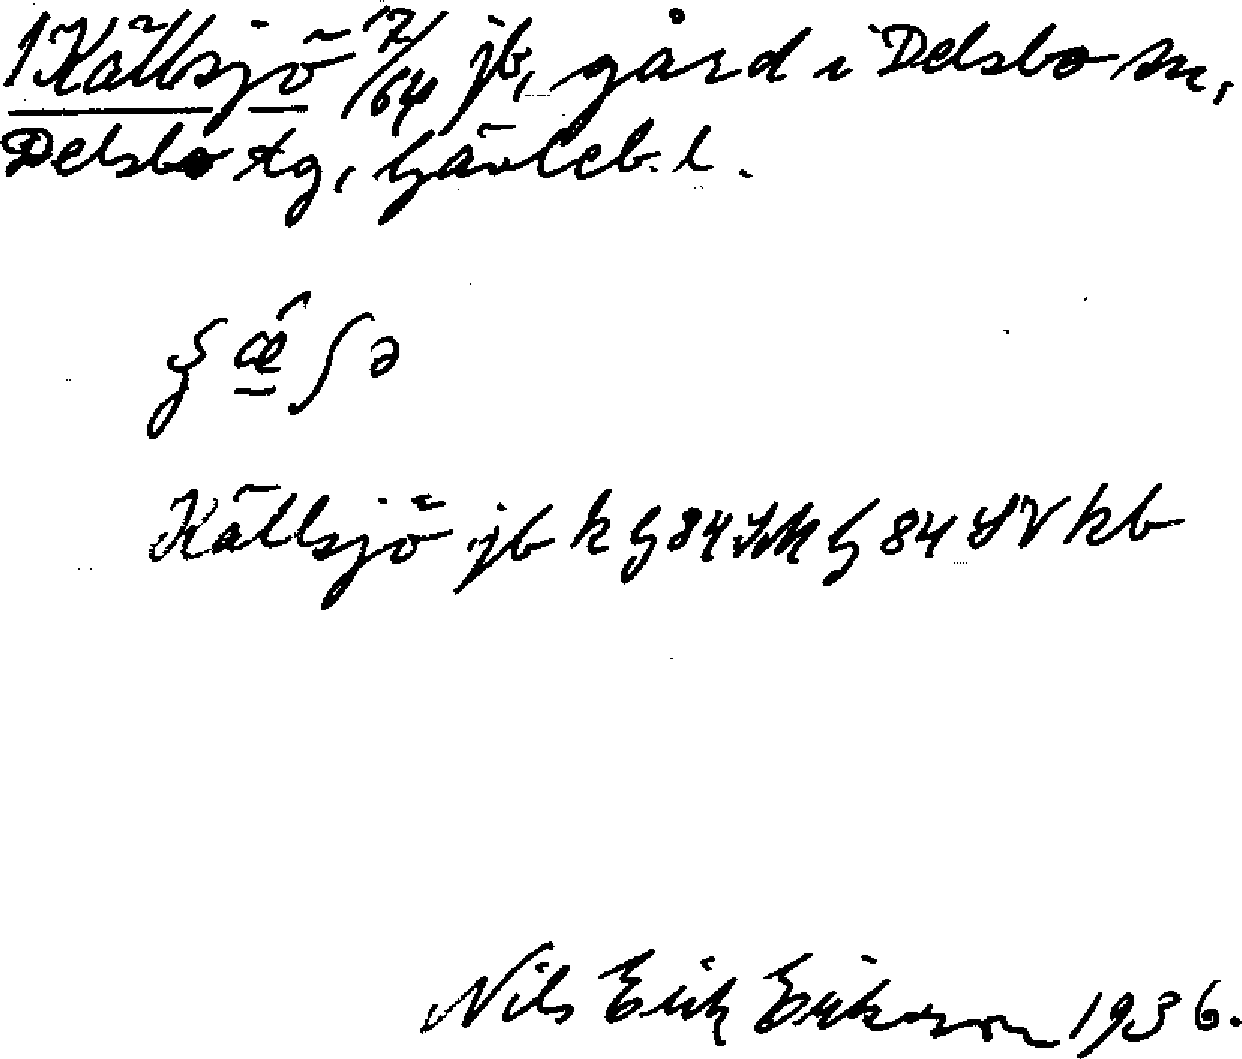 1 Källsjö 7/64 jb, gård i Delsbo sn,
Delsbo tg, Gävleb. l.
Källsjö jb k G 84 SV kb
Nils Erik Eriksson 1936.